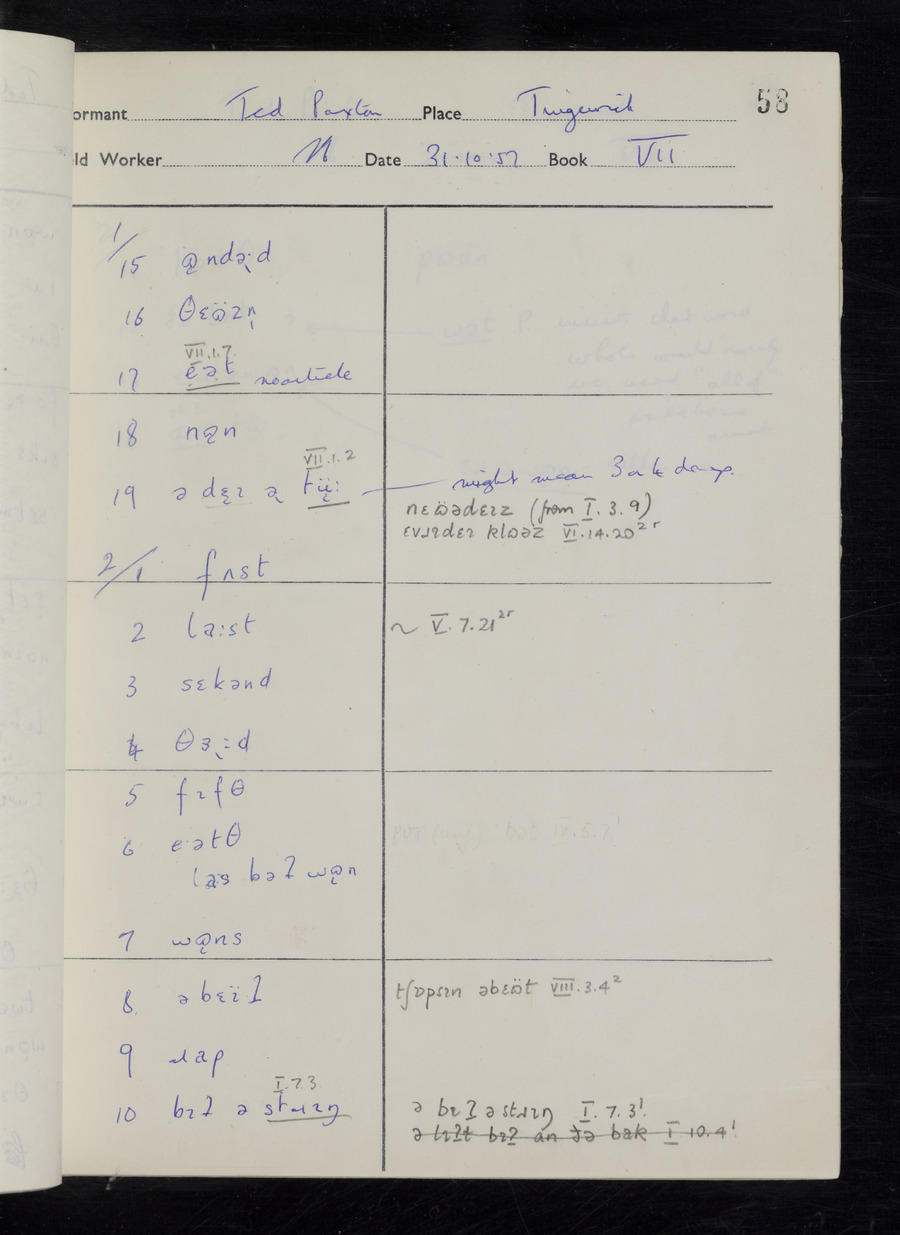 ormant Ted Paxton Place Tingewick 58
ld Worker N Date 31.10.57 Book VII
1/
15 ɒ̜ndəːd
16 θɛʊ̈zn̩
VII.1.7.
17 eət no article
18 nɒn
VII.1.2
19 ə dɛɪ ə tüː — might mean 3 or 4 days.
nɛʊ̈ədɛɪz (from I.3.9)
ɛvɹɪdɛɪ klɒəz VI.14.20²ʳ
2/1 fʌst
2 laːst ~ V.7.21²ʳ
3 sɛkənd
4 θɜːd
5 fɪfθ
6 eətθ
las bəʔ wɒn
7 wɒns
8 əbɛʊ̈ʔ tʃɒpsɪn əbɛʊ̈t VIII.3.4²
9 ɹap
I.7.3
10 bɪʔ ə stɹɪŋ ə bɪʔ ə stɹɪŋ I.7.3¹.
ə lɪʔt bɪʔ an ðə bak I 10.4¹